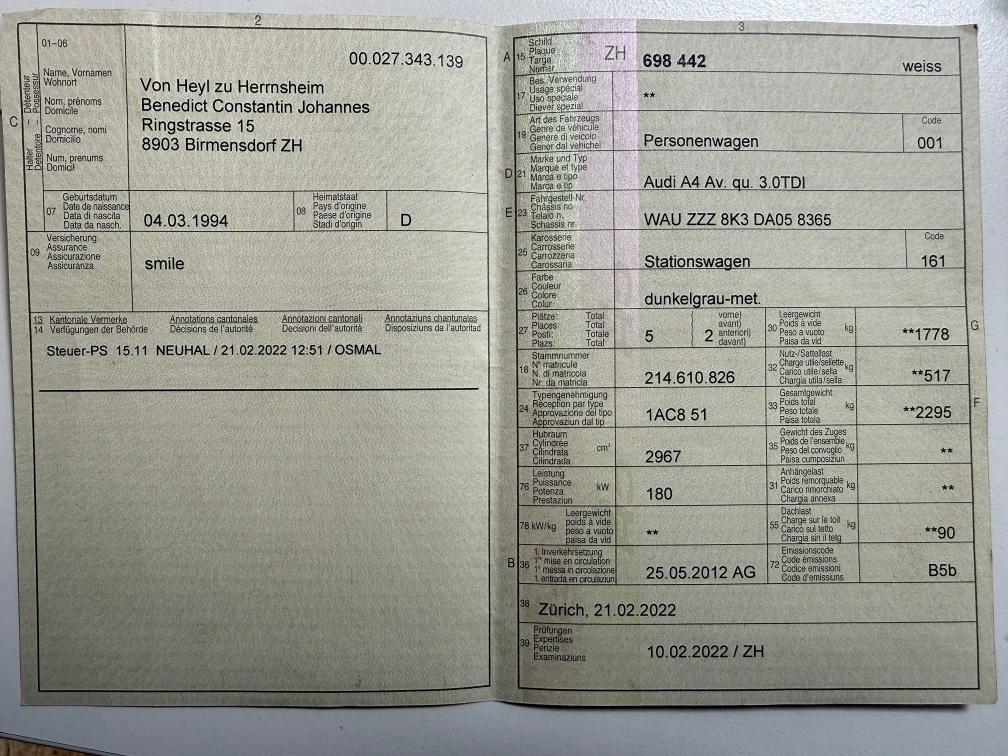 2
01–06
00.027.343.139
C
Halter – Détenteur
Detentore – Possessur
Name, Vornamen
Wohnort
Nom, prénoms
Domicile
Cognome, nomi
Domicilio
Num, prenums
Domicil
Von Heyl zu Herrnsheim
Benedict Constantin Johannes
Ringstrasse 15
8903 Birmensdorf ZH
07
Geburtsdatum
Date de naissance
Data di nascita
Data da nasch.
04.03.1994
08
Heimatstaat
Pays d'origine
Paese d'origine
Stadi d'origin
D
09
Versicherung
Assurance
Assicurazione
Assicuranza
smile
13 Kantonale Vermerke Annotations cantonales Annotazioni cantonali Annotaziuns chantunalas
14 Verfügungen der Behörde Décisions de l'autorité Decisioni dell'autorità Disposiziuns da l'autoritad
Steuer-PS 15.11 NEUHAL / 21.02.2022 12:51 / OSMAL
3
A 15
Schild
Plaque
Targa
Numer
ZH 698 442 weiss
17
Bes. Verwendung
Usage spécial
Uso speciale
Diever spezial
**
19
Art des Fahrzeugs
Genre de véhicule
Genere di veicolo
Gener dal vehichel
Personenwagen
Code
001
D 21
Marke und Typ
Marque et type
Marca e tipo
Marca e tip
Audi A4 Av. qu. 3.0TDI
E 23
Fahrgestell-Nr.
Châssis no
Telaio n.
Schassis nr.
WAU ZZZ 8K3 DA05 8365
25
Karosserie
Carrosserie
Carrozzeria
Carossaria
Stationswagen
Code
161
26
Farbe
Couleur
Colore
Colur
dunkelgrau-met.
27
Plätze: Total
Places: Total
Posti: Totale
Plazs: Total
5
2
vorne)
avant)
anteriori)
davant)
30
Leergewicht
Poids à vide
Peso a vuoto
Paisa da vid
kg
**1778
G
18
Stammnummer
N° matricule
N. di matricola
Nr. da matricla
214.610.826
32
Nutz-/Sattellast
Charge utile/sellette
Carico utile/sella
Chargia utila/sella
kg
**517
24
Typengenehmigung
Réception par type
Approvazione del tipo
Approvaziun dal tip
1AC8 51
33
Gesamtgewicht
Poids total
Peso totale
Paisa totala
kg
**2295
F
37
Hubraum
Cylindrée
Cilindrata
Cilindrada
cm³
2967
35
Gewicht des Zuges
Poids de l'ensemble
Peso del convoglio
Paisa cumposiziun
kg
**
76
Leistung
Puissance
Potenza
Prestaziun
kW
180
31
Anhängelast
Poids remorquable
Carico rimorchiato
Chargia annexa
kg
**
78 kW/kg
Leergewicht
poids à vide
peso a vuoto
paisa da vid
**
55
Dachlast
Charge sur le toit
Carico sul tetto
Chargia sin il tetg
kg
**90
B 36
1. Inverkehrsetzung
1re mise en circulation
1a messa in circolazione
1. entrada en circulaziun
25.05.2012 AG
72
Emissionscode
Code émissions
Codice emissioni
Code d'emissiuns
B5b
38 Zürich, 21.02.2022
39
Prüfungen
Expertises
Perizie
Examinaziuns
10.02.2022 / ZH